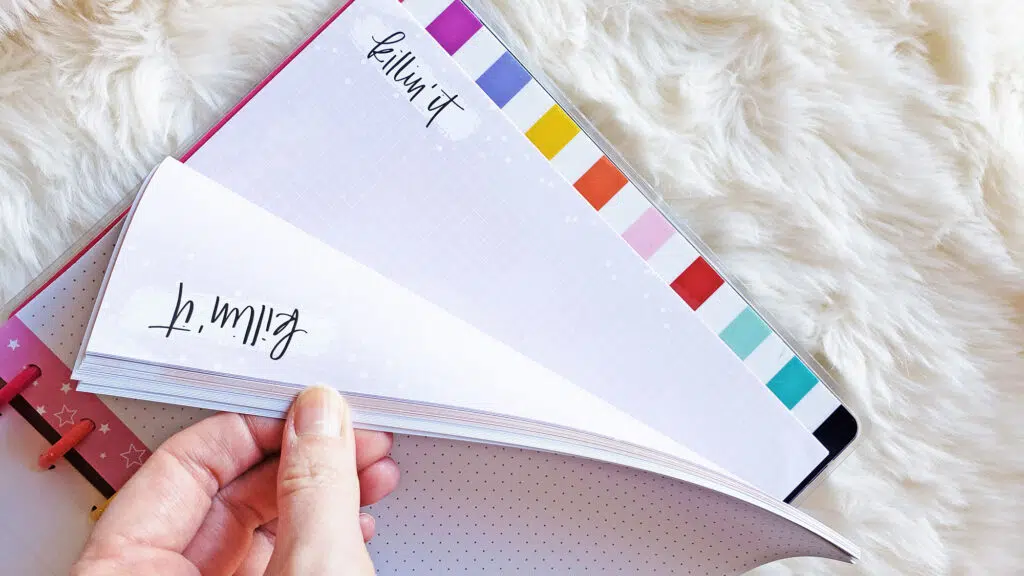 killin' it
killin' it